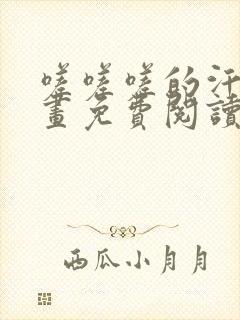 嗟嗟嗟的汗
畫免費閱讀
西瓜小月月